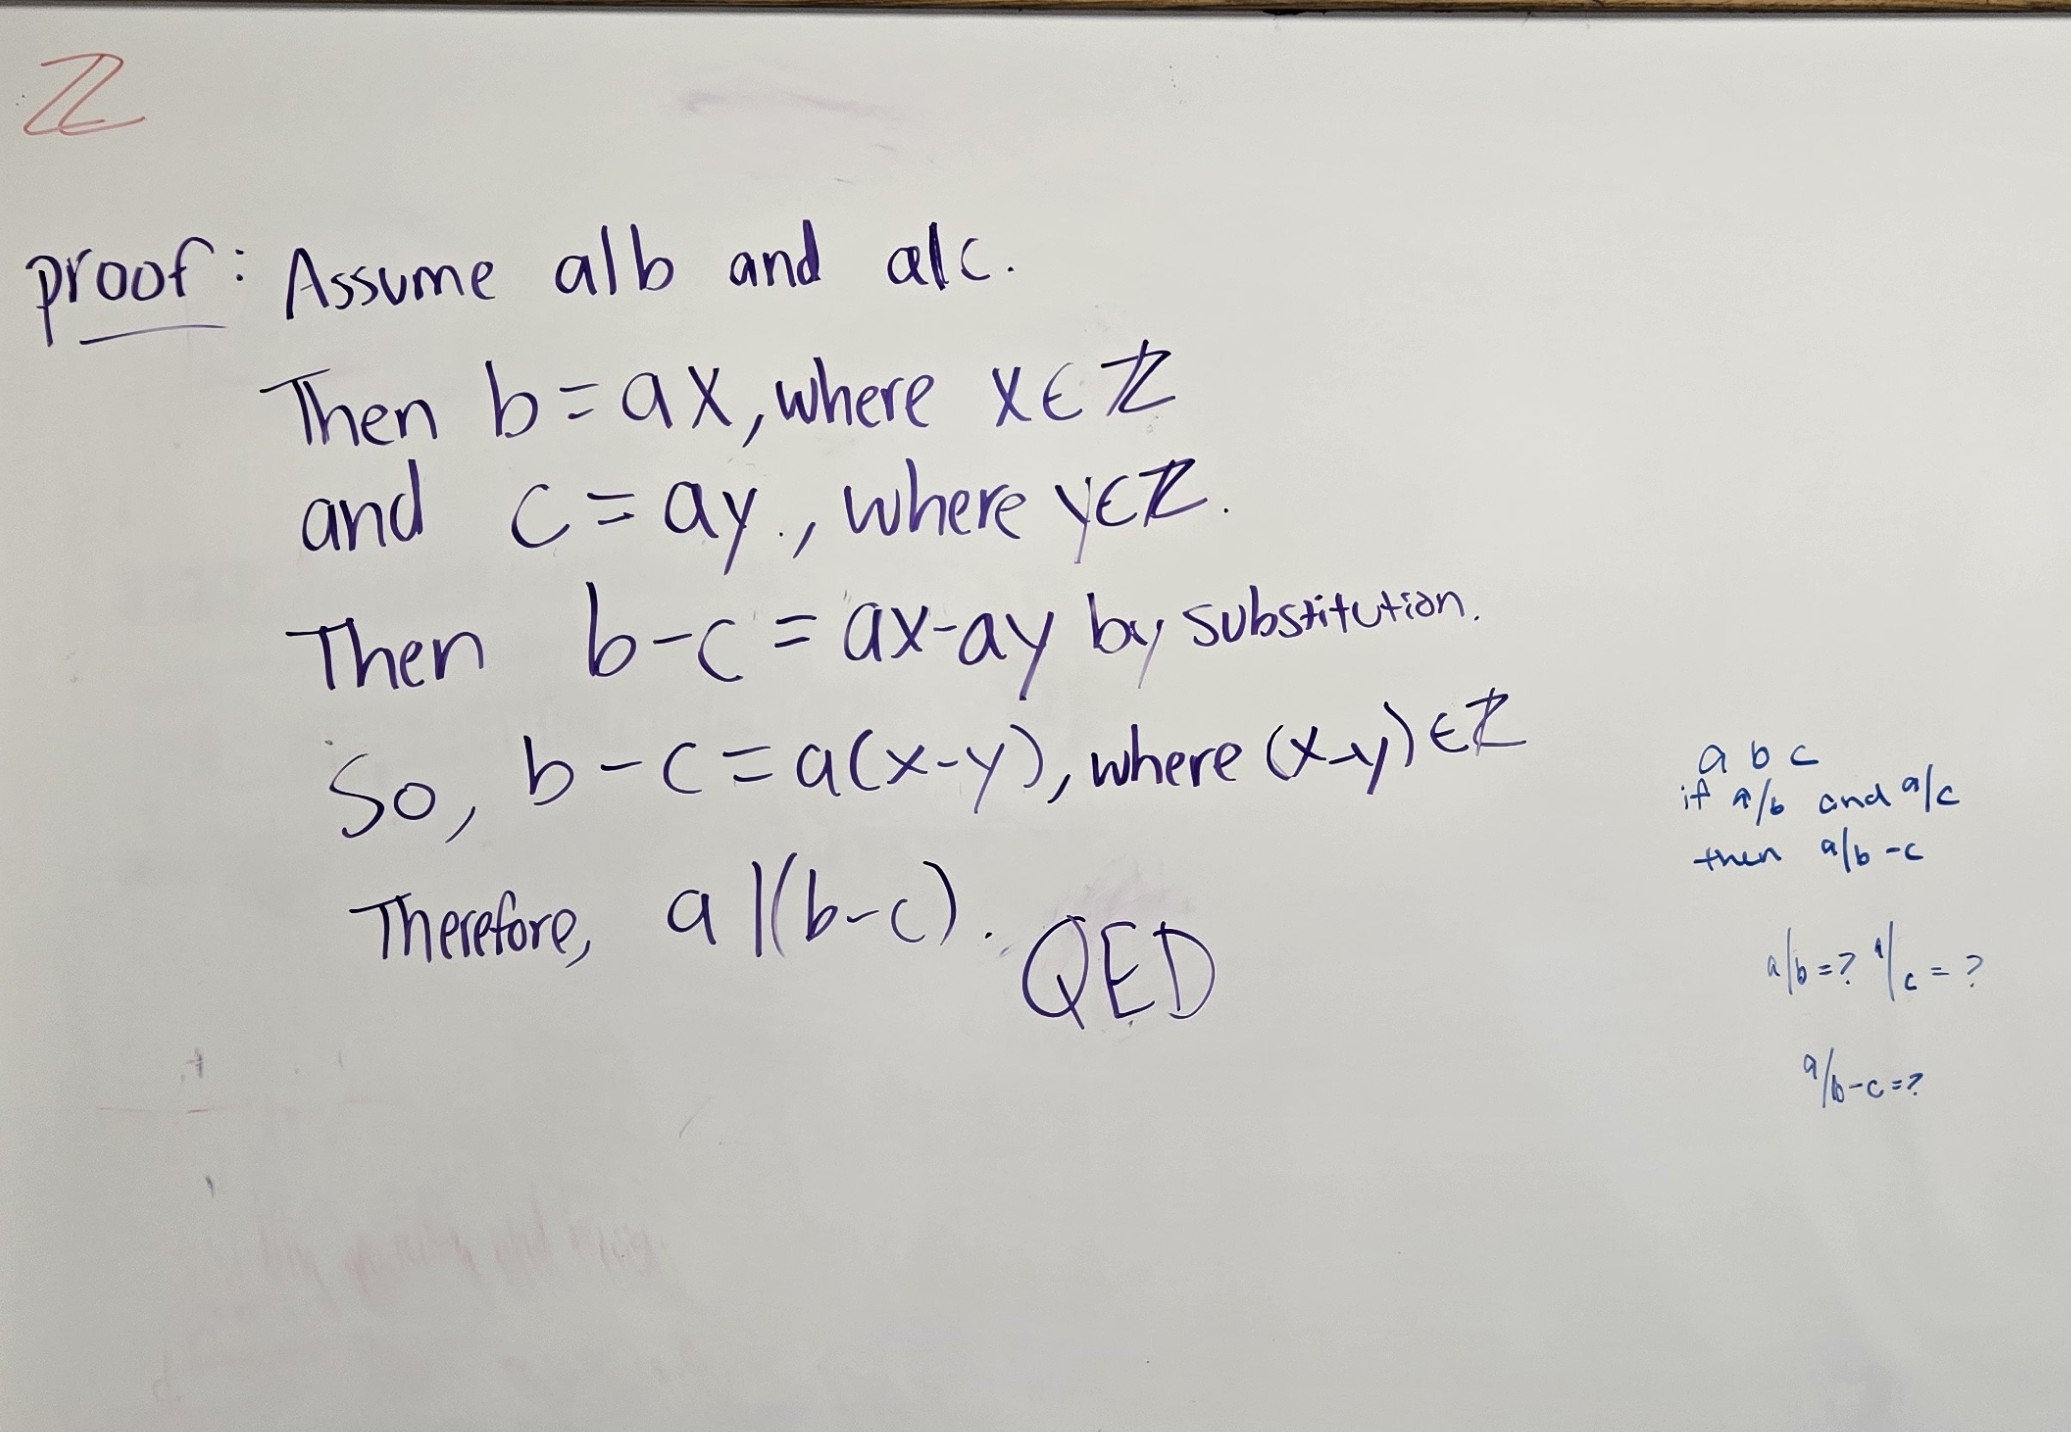 ℤ
proof: Assume a|b and a|c.
Then b = ax, where x ∈ ℤ
and c = ay., where y ∈ ℤ.
Then b - c = ax - ay by substitution.
So, b - c = a(x - y), where (x - y) ∈ ℤ
Therefore, a |(b - c).
QED
a b c
if a/b and a/c
then a/b - c
a/b = ? a/c = ?
a/b - c = ?